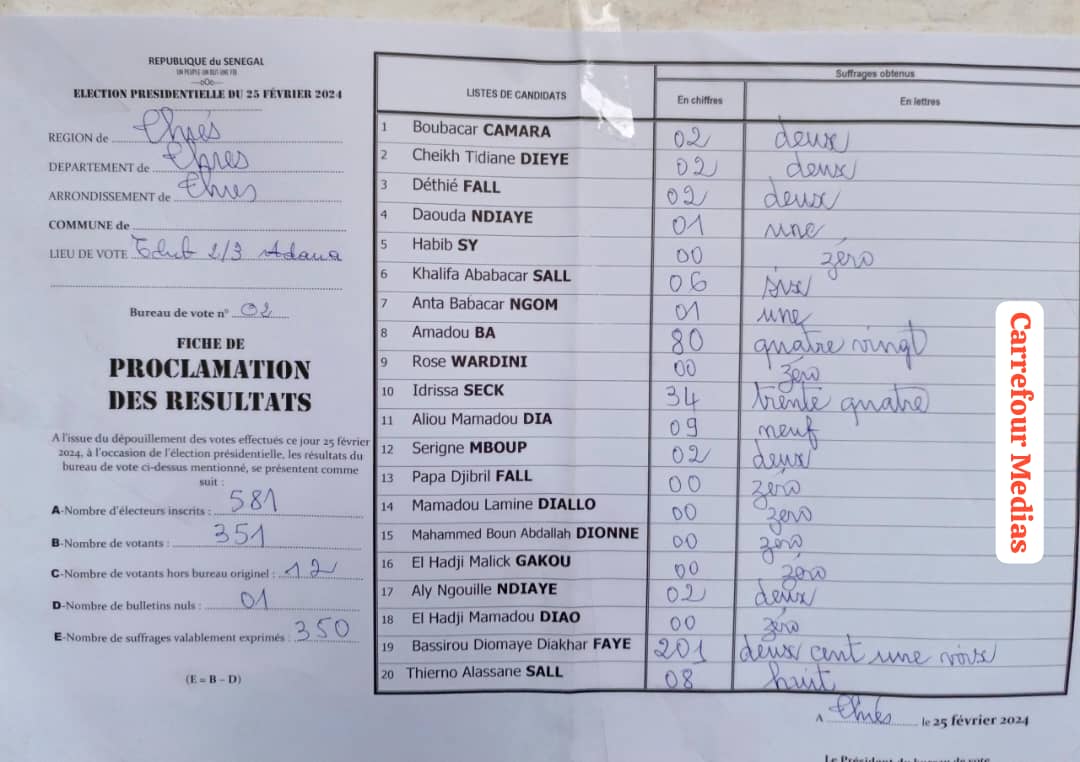 REPUBLIQUE du SENEGAL
UN PEUPLE-UN BUT-UNE FOI
---oOo---
ELECTION PRESIDENTIELLE DU 25 FÉVRIER 2024
REGION de Thiés
DEPARTEMENT de Thies
ARRONDISSEMENT de Thies
COMMUNE de
LIEU DE VOTE 2/3 Adana
Bureau de vote n° 02
FICHE DE
PROCLAMATION
DES RESULTATS
A l'issue du dépouillement des votes effectués ce jour 25 février
2024, à l'occasion de l'élection présidentielle, les résultats du
bureau de vote ci-dessus mentionné, se présentent comme
suit :
A-Nombre d'électeurs inscrits : 581
B-Nombre de votants : 351
C-Nombre de votants hors bureau originel : 12
D-Nombre de bulletins nuls : 01
E-Nombre de suffrages valablement exprimés : 350
(E = B – D)
LISTES DE CANDIDATS
Suffrages obtenus
En chiffres En lettres
1 Boubacar CAMARA 02 deux
2 Cheikh Tidiane DIEYE 02 deux
3 Déthié FALL 02 deux
4 Daouda NDIAYE 01 une
5 Habib SY 00 zéro
6 Khalifa Ababacar SALL 06 six
7 Anta Babacar NGOM 01 une
8 Amadou BA 80 quatre vingt
9 Rose WARDINI 00 zéro
10 Idrissa SECK 34 trente quatre
11 Aliou Mamadou DIA 09 neuf
12 Serigne MBOUP 02 deux
13 Papa Djibril FALL 00 zéro
14 Mamadou Lamine DIALLO 00 zéro
15 Mahammed Boun Abdallah DIONNE 00 zéro
16 El Hadji Malick GAKOU 00 zéro
17 Aly Ngouille NDIAYE 02 deux
18 El Hadji Mamadou DIAO 00 zéro
19 Bassirou Diomaye Diakhar FAYE 201 deux cent une voix
20 Thierno Alassane SALL 08 huit
A Thiés le 25 février 2024
Le Président du bureau de vote
Carrefour Medias